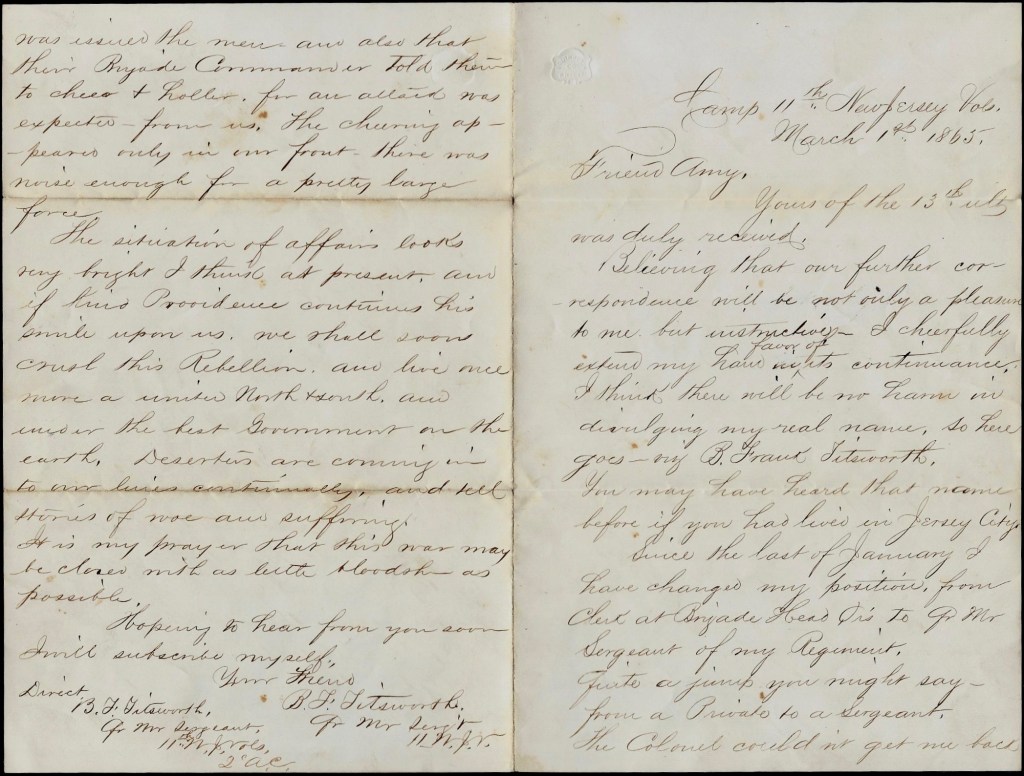 Camp 11th New Jersey Vols.
March 1st 1865.
Friend Amy,
Yours of the 13th ult
was duly received.
Believing that our further cor-
-respondence will be not only a pleasure
to me but instructive— I cheerfully
favor of
extend my hand in its continuance.
I think there will be no harm in
divulging my real name, so here
goes— viz B. Frank Titsworth.
You may have heard that name
before if you had lived in Jersey City.
Since the last of January I
have changed my position, from
Clerk at Brigade Head Qrs to Qr Mr
Sergeant of my Regiment.
Quite a jump you might say—
from a Private to a Sergeant.
The Colonel could n't get me back
was issued the men and also that
their Brigade Commander told them
to cheer & holler, for an attack was
expected from us. The cheering ap-
-peared only in our front— there was
noise enough for a pretty large
force.
The situation of affairs looks
very bright I think at present, and
if kind Providence continues his
smile upon us, we shall soon
crush this Rebellion, and live once
more a united North & South, and
under the best Government on the
earth. Deserters are coming in
to our lines continually, and tell
stories of woe and suffering.
It is my prayer that this war may
be closed with as little bloodsh— as
possible.
Hoping to hear from you soon
I will subscribe myself,
Your Friend
B. F. Titsworth.
Qr Mr Serg't
11 N.J.V.
Direct
B. F. Titsworth,
Qr Mr Sergeant,
11th N.J. Vols.
2d A.C.